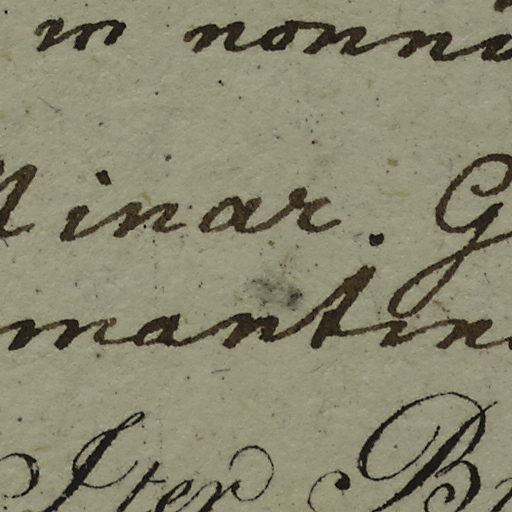 in nonni
Minar. G
mantin
Iter B